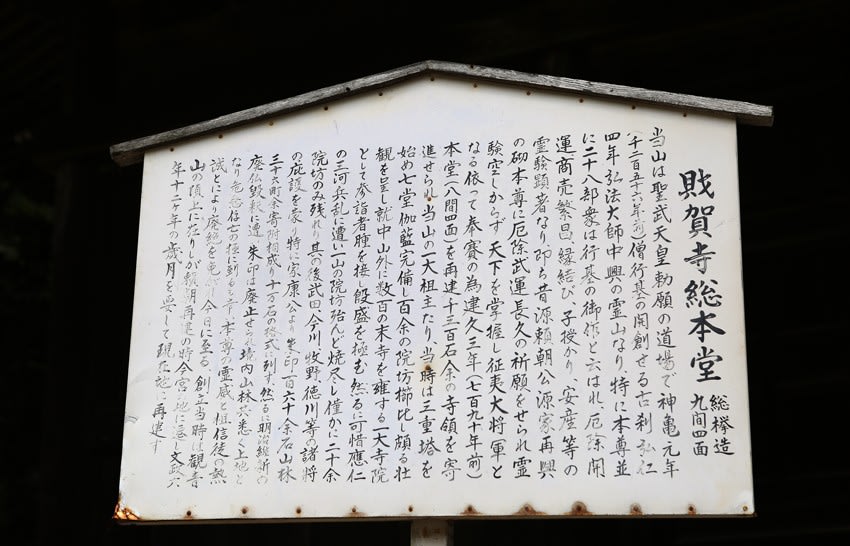 財賀寺総本堂
総欅造
九間四面
当山は聖武天皇勅願の道場で神亀元年
(千二百五十六年前)僧行基の開創せる古刹弘仁
四年弘法大師中興の霊山なり、特に本尊並
に二十八部衆は行基の御作と云はれ厄除開
運商売繁昌、縁結び、子授かり、安産等の
霊験顕著なり、即ち昔源頼朝公源家再興
の砌本尊に厄除武運長久の祈願をせられ霊
験空しからず天下を掌握し征夷大将軍と
なる依って奉賽の為建久三年(七百九十年前)
本堂(八間四面)を再建千三百石余の寺領を寄
進せられ当山の一大祖主たり、当時は三重塔を
始め七堂伽藍完備し百余の院坊櫛比し頗る壮
観を呈し就中山外に数百の末寺を雍する一大寺院
として参詣者腫を接し殷盛を極む然るに可惜應仁
の三河兵乱に遭い一山の院坊殆んど焼尽し僅かに二十余
院坊のみ残れり其の後武田今川、牧野徳川等の諸将
の庇護を蒙り特に家康公より朱印一百六十余石山林
三十六町余寄附相成り十万石の格式に列す然るに明治維新の
廃仏毀釈に遭、朱印は廃止せられ境内山林共悉く上地と
なり危急存亡の極に到るも幸、本尊の霊威と祖信徒の熱
誠とにより廃絶を免が 今日に至る 創立当時は観音
山の頂上に在りしが頼朝再建の時今宮の地に 文政六
年十二ヶ年の歳月を要して現在地に再建す